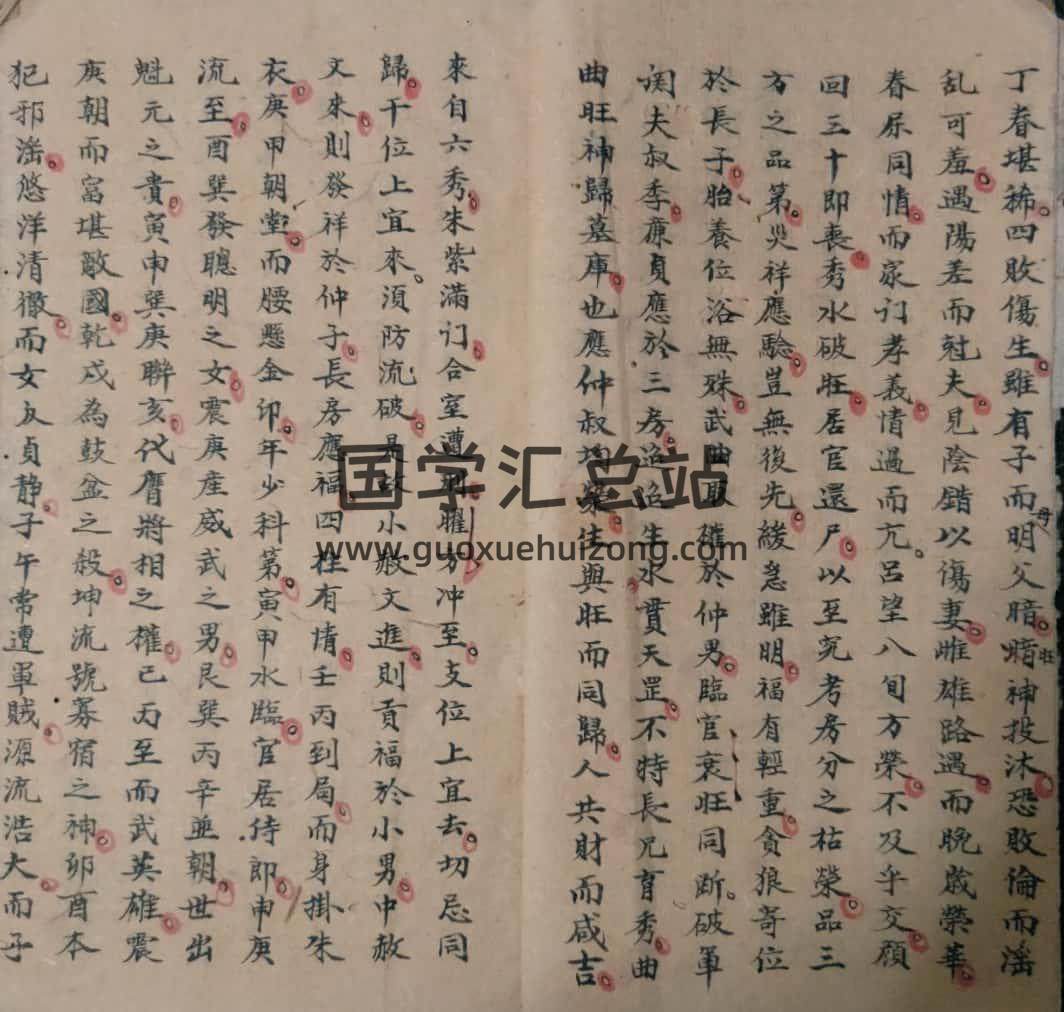 丁春堪稀四敗傷生雖有子而明父暗暗神投沐恐敗倫而滛
母
旺
乱可羞遇陽差而尅夫見陰錯以傷妻雌雄路遇而晚歲榮華
春尿同情而家订孝義情過而亢吕望八旬方榮不及乎交顔
回三十即喪秀水破旺居官還尸以至究考房分之枯榮品三
方之品第災祥應驗豈無後先緩急雖明福有輕重貪狼寄位
於長子胎養位浴無殊武曲取權於仲男臨官衰旺同斷破軍
関夫叔季廉貞應於三房迢迢生水貫天罡不特長兄育秀曲
曲旺神歸墓庫也應仲叔均榮生與旺而同歸人共財而咸吉
來自六秀朱紫滿订合室遭刑曜方冲至支位上宜去切忌同
歸干位上宜來須防流破是故小赦文進則貢福於小男中赦
文來則發祥於仲子長房應福四柱有情壬丙到局而身掛朱
衣庚甲朝堂而腰懸金卯年少科第寅甲水臨官居侍郎申庚
流至酉巽發聰明之女震庚産威武之男艮巽丙辛並朝世出
魁元之貴寅申巽庚聯亥代膺將相之權巳丙至而武英雄震
庚朝而富堪敵國乾戌為鼓盆之殺坤流號寡宿之神卯酉本
犯邪滛悠洋清徹而女友貞静子午常遭軍賊源流浩大而子
国学汇总站
www.guoxuehuizong.com